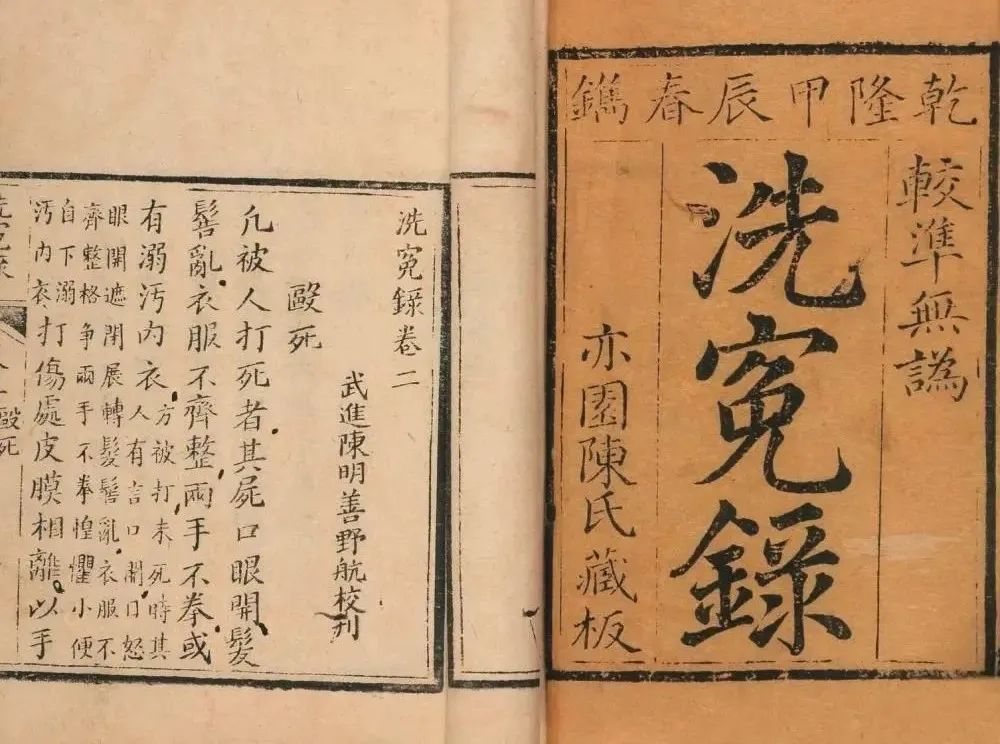 乾隆甲辰春鐫
較準無譌
洗寃錄
亦園陳氏藏板
洗寃錄卷二
武進陳明善野航校刊
毆死
凡被人打死者其屍口眼開髮
髻亂衣服不齊整兩手不拳或
有溺汚內衣
方被打未死時其
人有言口開口怒
眼開遮閉展轉髮髻亂衣服不
齊整格争兩手不拳惶懼小便
自下溺
汚內衣
打傷處皮膜相離以手
毆死